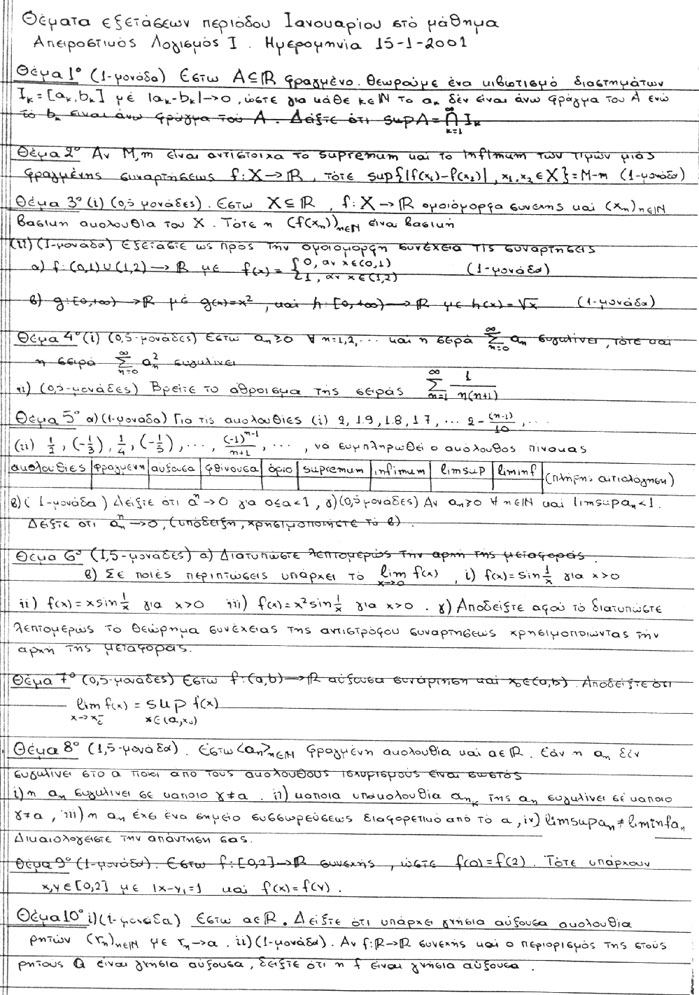 Θέματα εξετάσεων περιόδου Ιανουαρίου στό μάθημα
Απειροστικός Λογισμός Ι. Ημερομηνία 15-1-2001
Θέμα 1º (1-μονάδα) Εστω A⊆ℝ φραγμένο. Θεωρούμε ένα κιβωτισμό διαστημάτων
Iₖ=[aₖ,bₖ] μέ |aₖ-bₖ|→0, ώστε για κάθε k∈ℕ το aₖ δέν είναι άνω φράγμα του A ενώ
το bₖ είναι άνω φράγμα του A. Δείξτε ότι supA=⋂_{k=1}^{∞} Iₖ
Θέμα 2º Αν M,m είναι αντίστοιχα το supremum και το infimum των τιμών μιάς
φραγμένης συναρτήσεως f:X→ℝ, τότε sup{|f(x₁)-f(x₂)|, x₁,x₂∈X}=M-m (1-μονάδα)
Θέμα 3º (i) (0,5 μονάδες). Εστω X⊆ℝ, f:X→ℝ ομοιόμορφα συνεχής και (xₙ)n∈ℕ
βασική ακολουθία του X. Τότε η (f(xₙ))n∈ℕ είναι βασική
(ii) (1-μονάδα) Εξετάστε ως πρός την ομοιόμορφη συνέχεια τις συναρτήσεις
α) f:(0,1)∪(1,2)→ℝ με f(x)={0, αν x∈(0,1) (1-μονάδα)
1, αν x∈(1,2)
β) g:[0,+∞)→ℝ μέ g(x)=x², και h:[0,+∞)→ℝ με h(x)=√x (1-μονάδα)
Θέμα 4º (i) (0,5-μονάδες) Εστω aₙ≥0 ∀ n=1,2,... και η σειρά ∑_{n=0}^{∞} aₙ συγκλίνει, τότε και
η σειρά ∑_{n=0}^{∞} aₙ² συγκλίνει
ii) (0,5-μονάδες) Βρείτε το άθροισμα της σειράς ∑_{n=1}^{∞} 1/(n(n+1))
Θέμα 5º α) (1-μονάδα) Για τις ακολουθίες (i) 2, 1.9, 1.8, 1.7, ... 2-(n-1)/10, ...
(ii) 1/2, (-1/3), 1/4, (-1/5), ..., (-1)ⁿ⁻¹/(n+1), ..., νά συμπληρωθεί ο ακόλουθος πίνακας
ακολουθίες | φραγμένη | αύξουσα | φθίνουσα | όριο | supremum | infimum | limsup | liminf | (πλήρης αιτιολόγηση)
β) (1-μονάδα) Δείξτε ότι aⁿ→0 για 0≤a<1, γ) (0,5 μονάδες) Αν aₙ≥0 ∀ n∈ℕ και limsupaₙ<1.
Δείξτε ότι aₙⁿ→0, (υπόδειξη, χρησιμοποιήστε το β).
Θέμα 6º (1,5-μονάδες) α) Διατυπώστε λεπτομερώς την αρχή της μεταφοράς.
β) Σε ποιές περιπτώσεις υπάρχει το lim_{x→0} f(x), i) f(x)=sin 1/x για x>0
ii) f(x)=xsin 1/x για x>0 iii) f(x)=x²sin 1/x για x>0. γ) Αποδείξτε αφού το διατυπώστε
λεπτομερώς το θεώρημα συνέχειας της αντιστρόφου συναρτήσεως χρησιμοποιώντας την
αρχή της μεταφοράς.
Θέμα 7º (0,5-μονάδες) Εστω f:(a,b)→ℝ αύξουσα συνάρτηση και x₀∈(a,b). Αποδείξτε ότι
lim_{x→x₀⁻} f(x) = sup_{x∈(a,x₀)} f(x)
Θέμα 8º (1,5-μονάδα). Εστω <aₙ>n∈ℕ φραγμένη ακολουθία και a∈ℝ. Εάν η aₙ δέν
συγκλίνει στο a ποιοι από τους ακόλουθους ισχυρισμούς είναι σωστός
i) η aₙ συγκλίνει σε κάποιο γ≠a. ii) κάποια υπακολουθία aₙₖ της aₙ συγκλίνει σέ κάποιο
γ≠a, iii) η aₙ έχει ένα σημείο συσσωρεύσεως διαφορετικό από το a, iv) limsupaₙ≠liminfaₙ
Δικαιολογείστε την απάντηση σας.
Θέμα 9º (1-μονάδα). Εστω f:[0,2]→ℝ συνεχής, ώστε f(0)=f(2). Τότε υπάρχουν
x,y∈[0,2] με |x-y|=1 και f(x)=f(y).
Θέμα 10º i) (1-μονάδα) Εστω a∈ℝ. Δείξτε ότι υπάρχει γνήσια αύξουσα ακολουθία
ρητών (rₙ)n∈ℕ με rₙ→a. ii) (1-μονάδα). Αν f:ℝ→ℝ συνεχής και ο περιορισμός της στους
ρητους ℚ είναι γνήσια αύξουσα, δείξτε ότι η f είναι γνήσια αύξουσα.